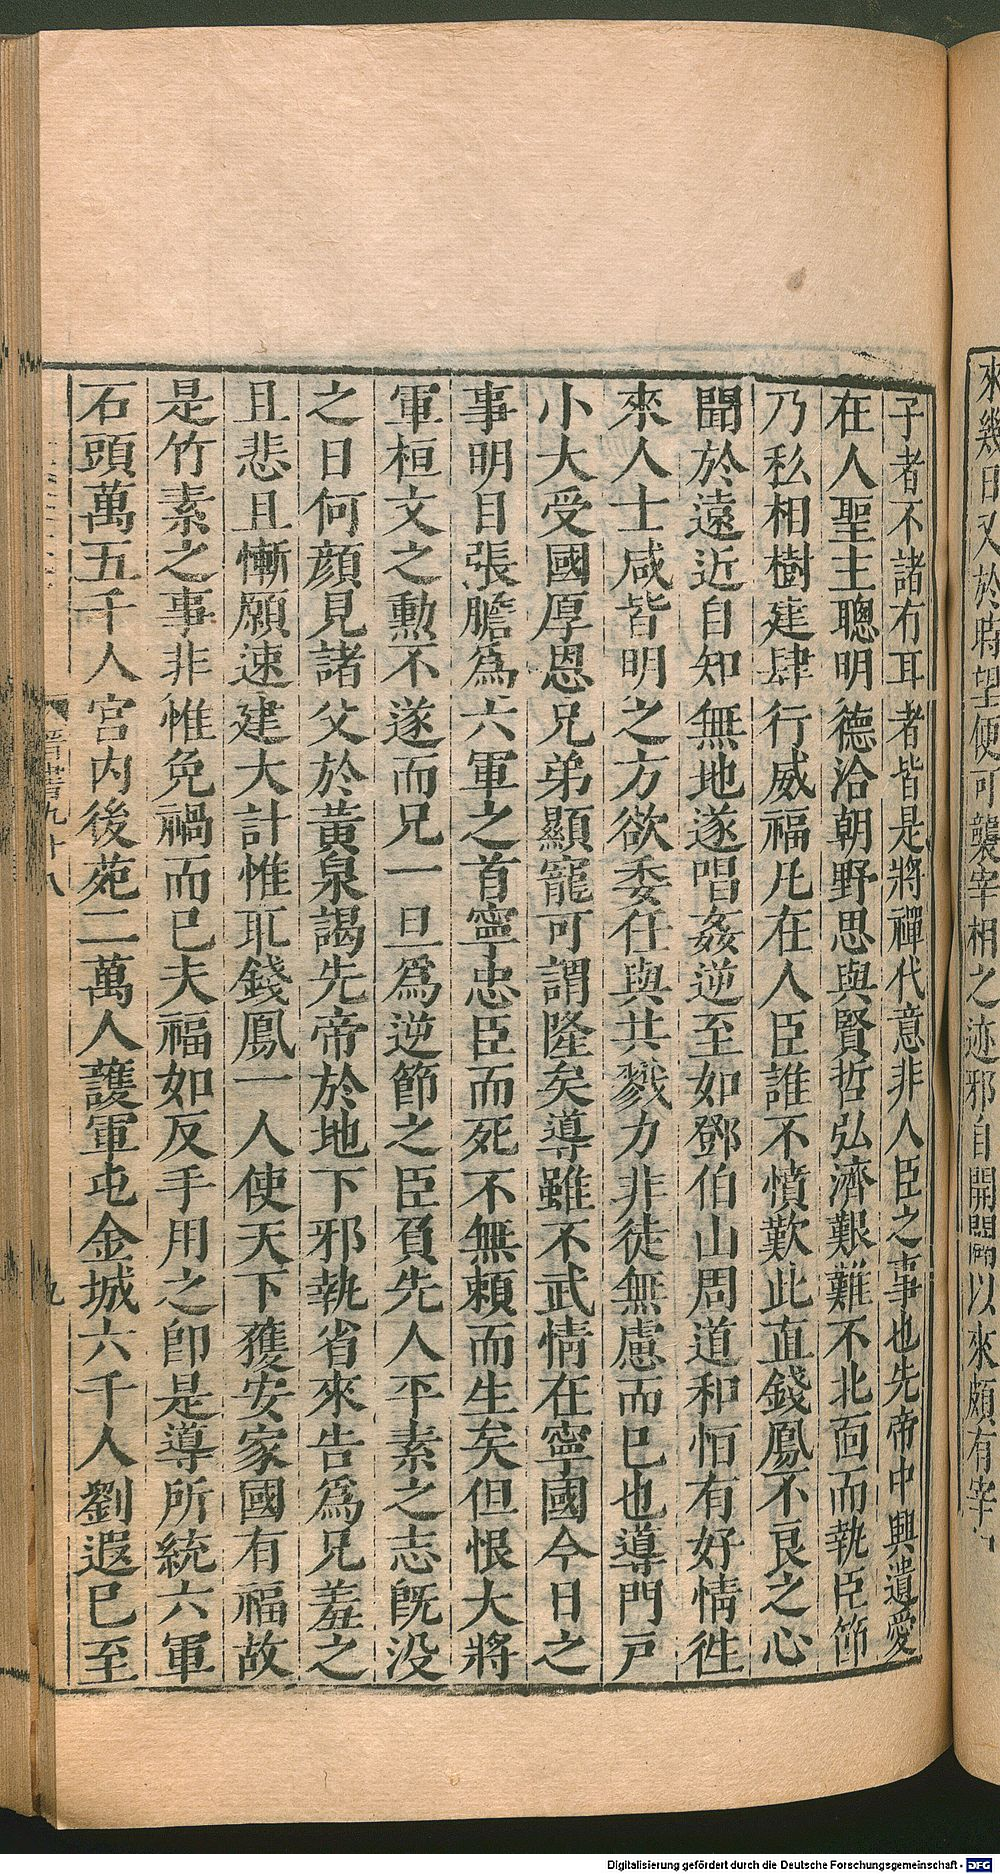 來幾日又於時望便可襲宰相之迹邪自開闢以來頗有宰
子者不諸有耳者皆是將禪代意非人臣之事也先帝中興遺愛
在人聖主聰明德洽朝野思與賢哲弘濟艱難不北面而執臣節
乃私相樹建肆行威福凡在人臣誰不憤歎此直錢鳳不良之心
聞於遠近自知無地遂唱姦逆至如鄧伯山周道和恒有好情徃
來人士咸皆明之方欲委任與共戮力非徒無慮而已也導門戸
小大受國厚恩兄弟顯寵可謂隆矣導雖不武情在寧國今日之
事明目張膽爲六軍之首寧忠臣而死不無賴而生矣但恨大將
軍桓文之勲不遂而兄一旦爲逆節之臣負先人平素之志旣没
之日何顔見諸父於黃泉謁先帝於地下邪執省來告爲兄羞之
且悲且慚願速建大計惟取錢鳳一人使天下獲安家國有福故
是竹素之事非惟免禍而已夫福如反手用之卽是導所統六軍
石頭萬五千人宮内後苑二萬人護軍屯金城六千人劉遐已至
晉書九十八
九
Digitalisierung gefördert durch die Deutsche Forschungsgemeinschaft - DFG